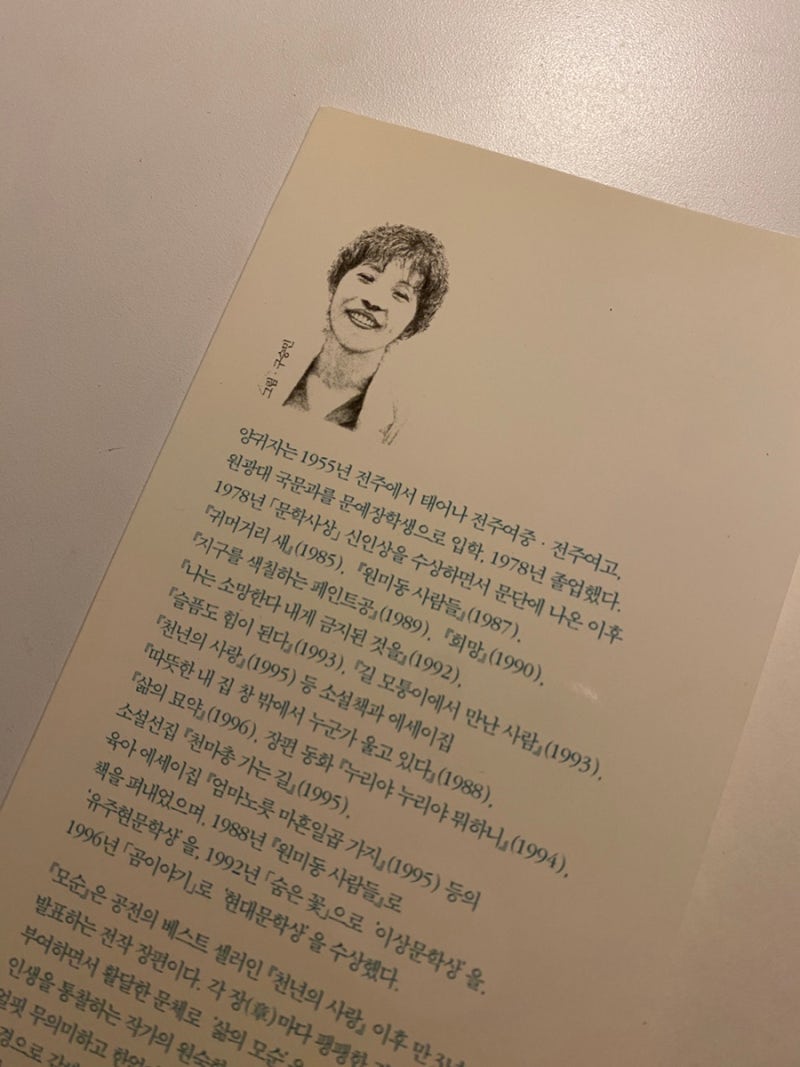 그림 · 구승민
양귀자는 1955년 전주에서 태어나 전주여중 · 전주여고,
원광대 국문과를 문예장학생으로 입학, 1978년 졸업했다.
1978년 「문학사상」 신인상을 수상하면서 문단에 나온 이후
『귀머거리 새』(1985), 『원미동 사람들』(1987),
『지구를 색칠하는 페인트공』(1989), 『희망』(1990),
『나는 소망한다 내게 금지된 것을』(1992),
『슬픔도 힘이 된다』(1993), 『길 모퉁이에서 만난 사람』(1993),
『천년의 사랑』(1995) 등 소설책과 에세이집
『따뜻한 내 집 창 밖에서 누군가 울고 있다』(1988),
『삶의 묘약』(1996), 장편 동화 『누리야 누리야 뭐하니』(1994),
소설선집 『천마총 가는 길』(1995),
육아 에세이집 『엄마노릇 마흔일곱 가지』(1995) 등의
책을 펴내었으며, 1988년 『원미동 사람들』로
‘유주현문학상’을, 1992년 「숨은 꽃」으로 ‘이상문학상’을,
1996년 「곰이야기」로 ‘현대문학상’을 수상했다.
『모순』은 공전의 베스트 셀러인 『천년의 사랑』 이후 만
발표하는 전작 장편이다. 각 장(章)마다 팽팽한
부여하면서 활달한 문체로 ‘삶의 모순’을
인생을 통찰하는 작가의 원숙한
얼핏 무의미하고